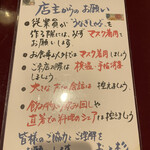 店主からのお願い
従業員が「うなぎしゃぶ」を
作る際には、必ずマスク着用で
お食事以外ではマスク着用しましょう
ご来店の際は検温・手指消毒
しましょう
大きな声での会話は控えましょう
飲み物の回し
直箸での料理のシェアは控えましょう
皆様のご協力とご理解を